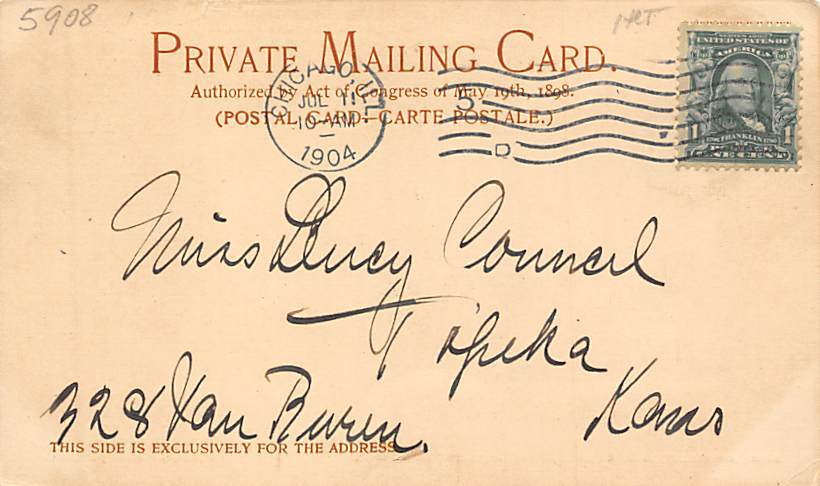 5908
PRIVATE MAILING CARD.
Authorized by Act of Congress of May 19th, 1898.
(POSTAL CARD—CARTE POSTALE.)
CHICAGO, ILL
JUL 11
10-AM
1904
D
UNITED STATES OF
AMERICA
1 FRANKLIN 1
ONE CENT
Miss Lucy Council
Topeka
328 Van Buren. Kans
THIS SIDE IS EXCLUSIVELY FOR THE ADDRESS